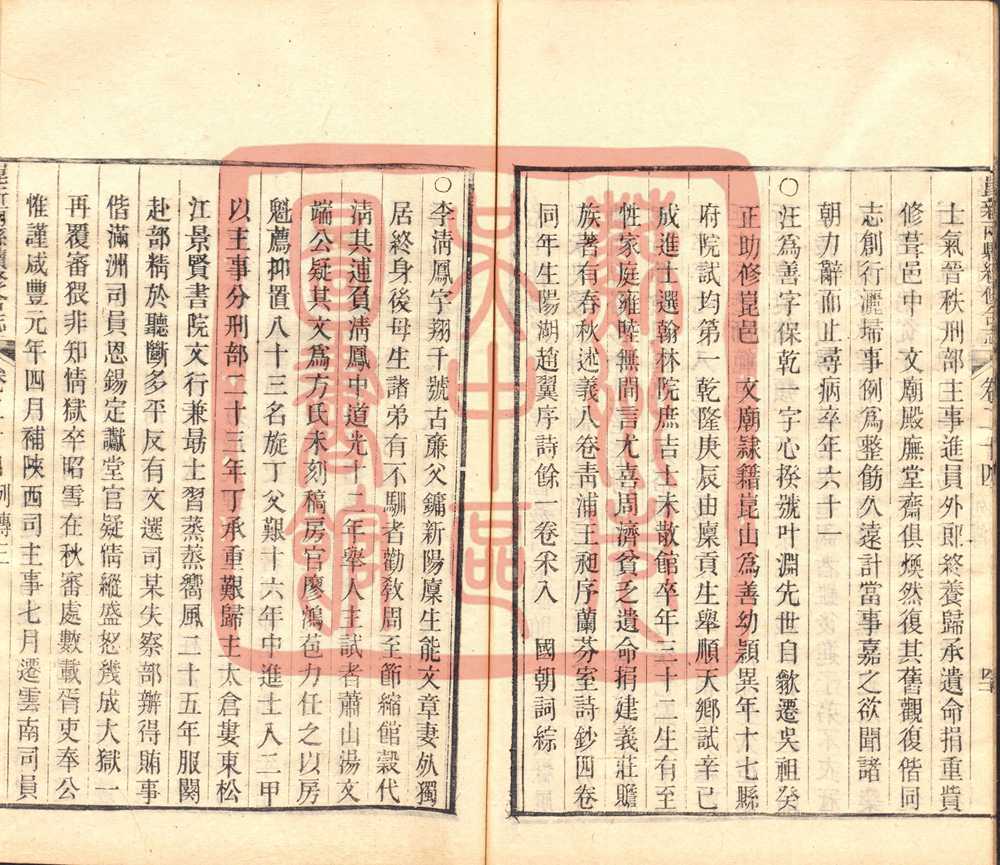 士氣晉秩刑部主事進員外郎終養歸承遺命捐重貲
修葺邑中　文廟殿廡堂齋俱煥然復其舊觀復偕同
志創行灑埽事例為整飭久遠計當事嘉之欲聞諸
朝力辭而止尋病卒年六十一
○汪為善字保乾一字心揆號叶淵先世自歙遷吳祖癸
正助修崑邑　文廟隷籍崑山為善幼穎異年十七縣
府院試均第一乾隆庚辰由廩貢生舉順天鄉試辛巳
成進士選翰林院庶吉士未散館卒年三十二生有至
性家庭雍睦無間言尤喜周濟貧乏遺命捐建義莊贍
族著有春秋述義八卷靑浦王昶序蘭芬室詩鈔四卷
同年生陽湖趙翼序詩餘一卷采入　國朝詞綜
○李淸鳳字翔千號古廉父鏞新陽廩生能文章妻歿獨
居終身後母生諸弟有不馴者勸敎周至節縮館穀代
淸其逋負淸鳳中道光十二年舉人主試者蕭山湯文
端公疑其文為方氏未刻稿房官廖鴻苞力任之以房
魁薦抑置八十三名旋丁父艱十六年中進士入二甲
以主事分刑部二十三年丁承重艱歸主太倉婁東松
江景賢書院文行兼勗士習蒸蒸嚮風二十五年服闋
赴部精於聽斷多平反有文選司某失察部辦得賄事
偕滿洲司員恩錫定讞堂官疑情縱盛怒幾成大獄一
再覆審猥非知情獄卒昭雪在秋審處數載胥吏奉公
惟謹咸豐元年四月補陝西司主事七月遷雲南司員